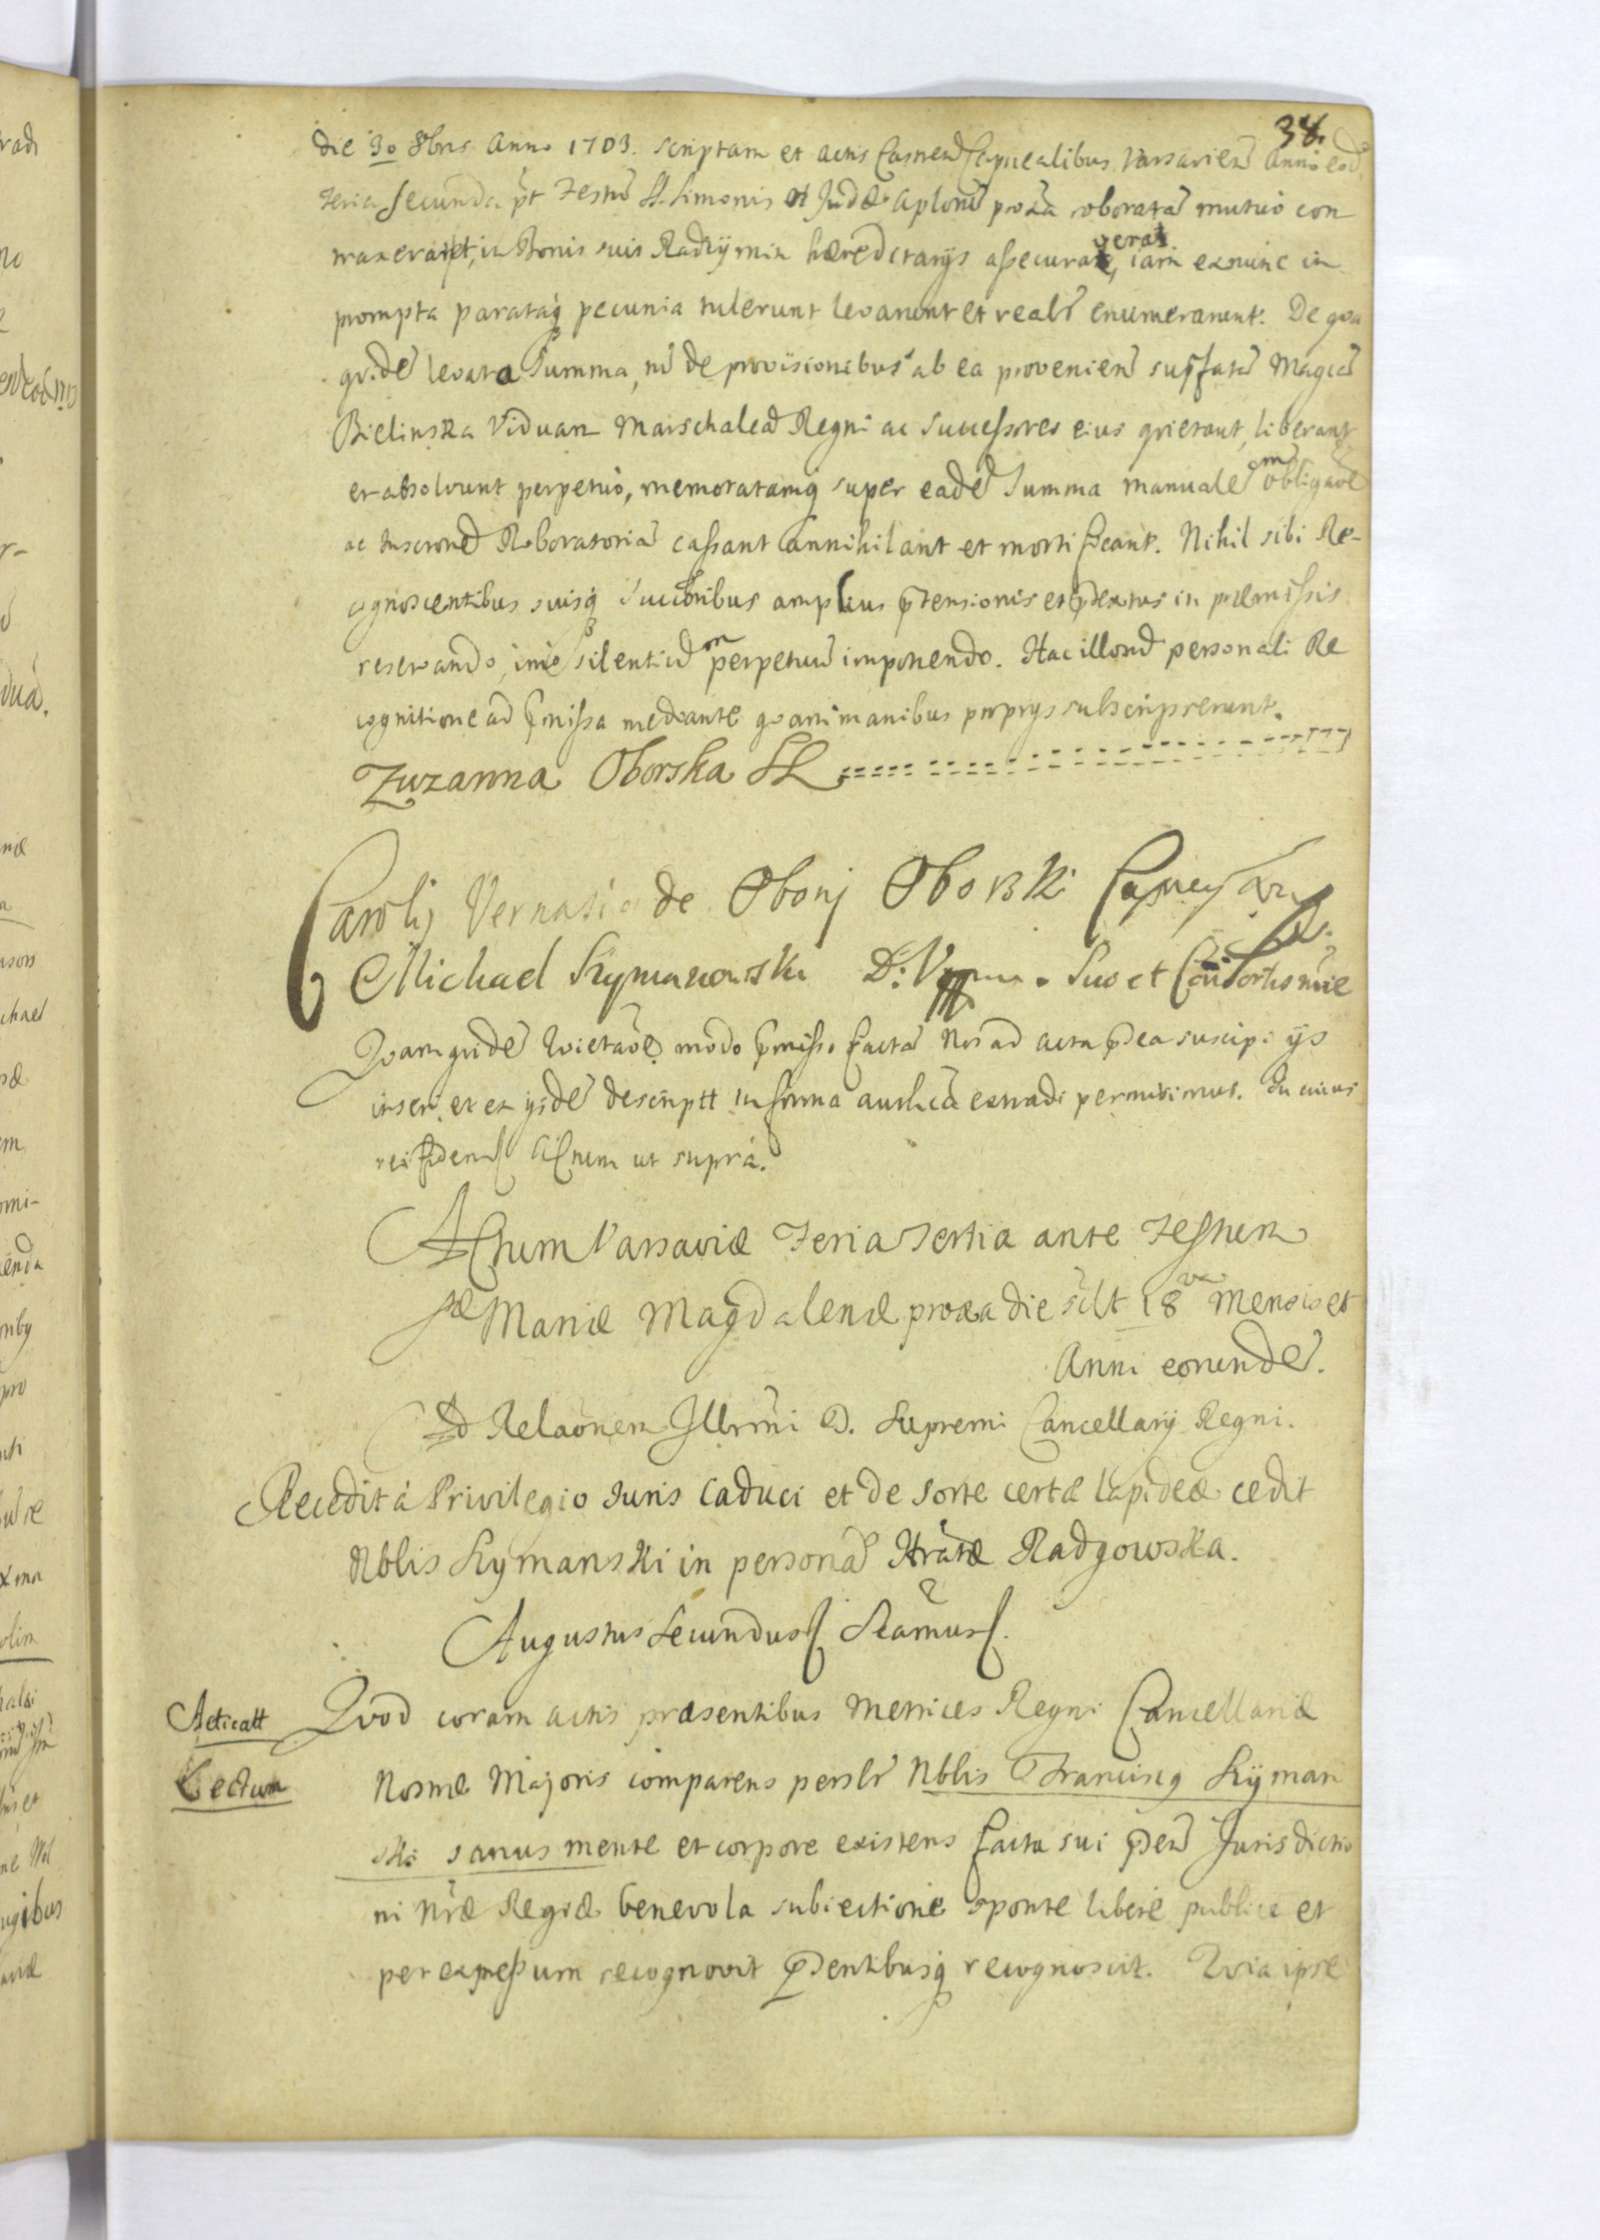 38.
die 30 8bris Anno 1703. scriptam et actis Castren Capitealibus Varsavien Anno eod
Feria Secunda pt Festu SS. Simonis et Judæ Aplorũ proxa roborata mutuo con
traxerat, in Bonis suis Radzymin hæreditarijs assecuraverat, iam exnunc in
prompta parataq pecunia tulerunt levarunt et realr enumerarunt. De qua
quide levata Summa, ni de provisionibus ab ea provenien supfata Magca
Bielinska Viduam Marschalca Regni ac Successores eius quietant, liberant
et absolvunt perpetuo, memoratamq super eade Summa manuale obligaõe
ac Inscrone Roboratoria cassant annihilant et mortificant. Nihil sibi Re-
cognoscentibus suisq Succoribus amplius ptensionis et ptextus in præmissis
reservando, imo silentium perpetuum imponendo. Hac illorũ personali Re
cognitione ad pmissa mediante quam manibus proprijs subscripserunt.
Zuzanna Oborska SL
Carolij Vernasi de Oborij Oborski
Michael Szymanowski Suo et Consortis nõie
Quamquide Quietaõe modo pmisso facta Nos ad acta pnta suscipi ijs
inseri et ex ijsde descriptt in forma authca extradi permisimus. In cuius
rei fidem Actum ut supra.
Actum Varsaviæ Feria Tertia ante Festum
Stæ Mariæ Magdalenæ proxa die silt 18va Mensis et
Anni eorunde.
Ad Relaõnem Illrmi D. Supremi Cancellarij Regni.
Recedit á Privilegio Juris Caduci et de sorte certæ lapideæ cedit
Nblis Szymanski in persona Hratæ Radgowska.
Augustus Secundus Seamus.
Acticatt
Lectum
Quod coram actis præsentibus Metrices Regni Cancellariæ
Nostræ Majoris comparens perslr Nblis Franciscq Szyman
ski sanus mente et corpore existens facta sui pen Jurisdictio
ni Nræ Regiæ benevola subiectione sponte libere publice et
per expressum recognovit pdentibusq recognoscit. Quia ipse